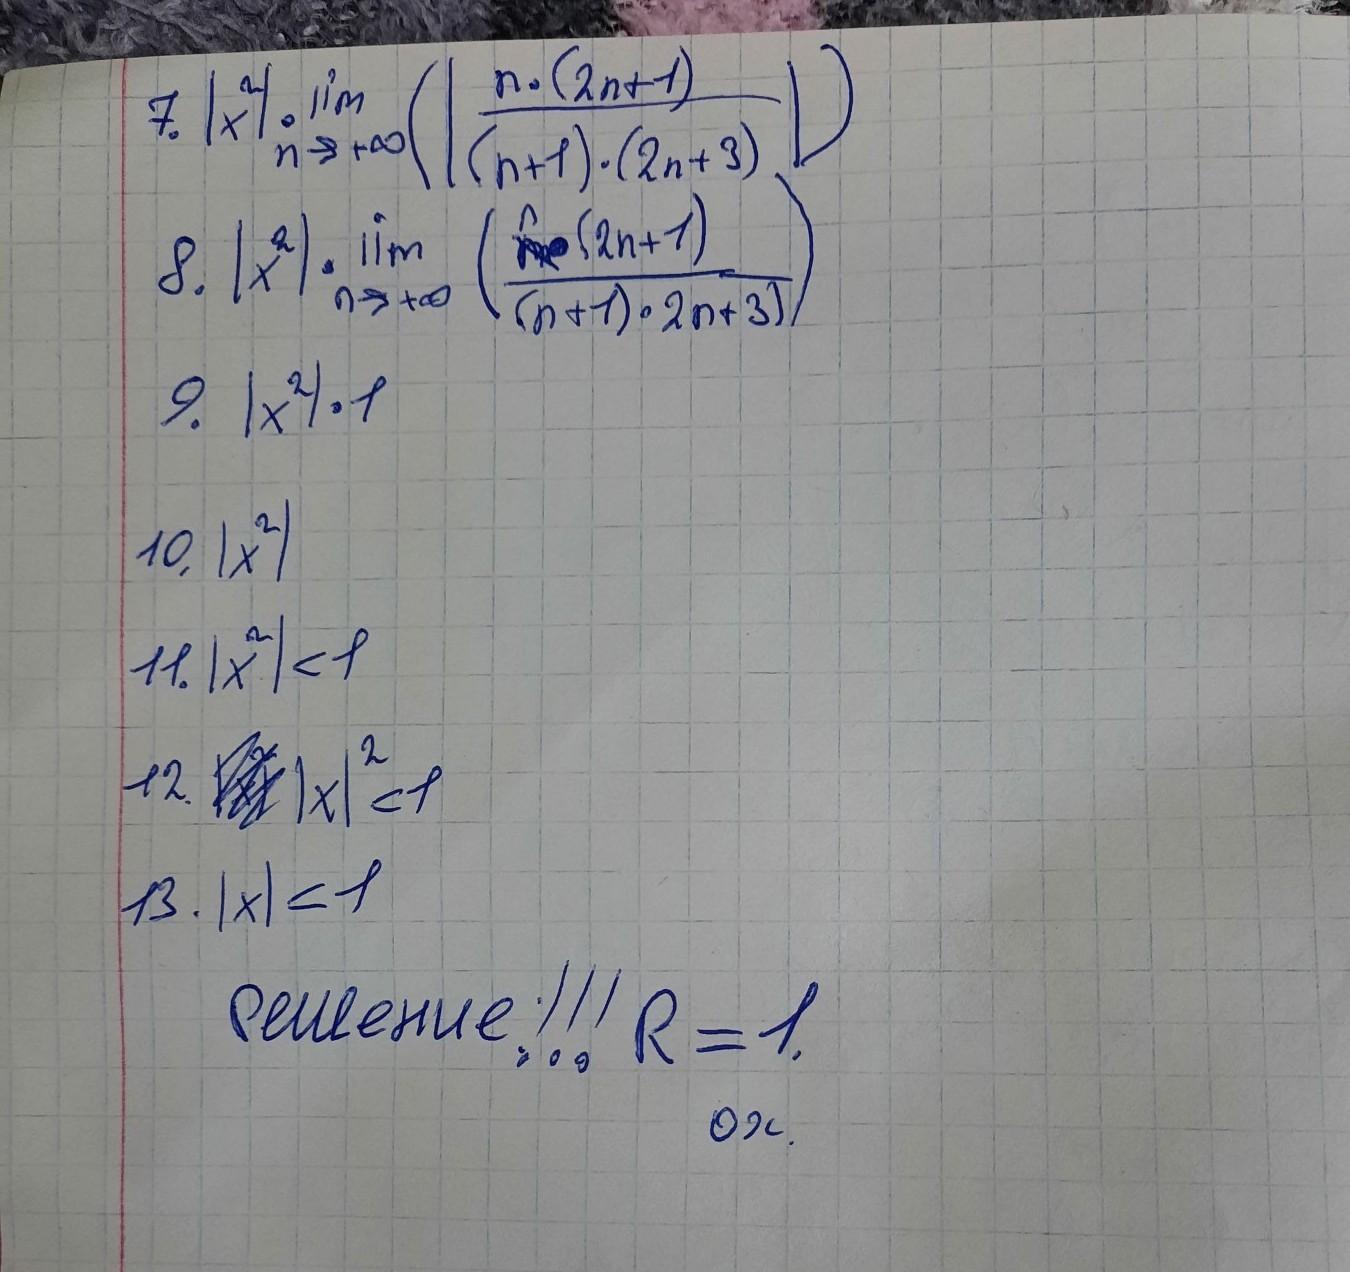 7. |x²| · lim n→+∞ (| n·(2n+1) / (n+1)·(2n+3) |)
8. |x²| · lim n→+∞ ( n (2n+1) / (n+1)·2n+3) )
9. |x²|·1
10. |x²|
11. |x²|<1
12. |x|²<1
13. |x|<1
Решение!!! R=1.